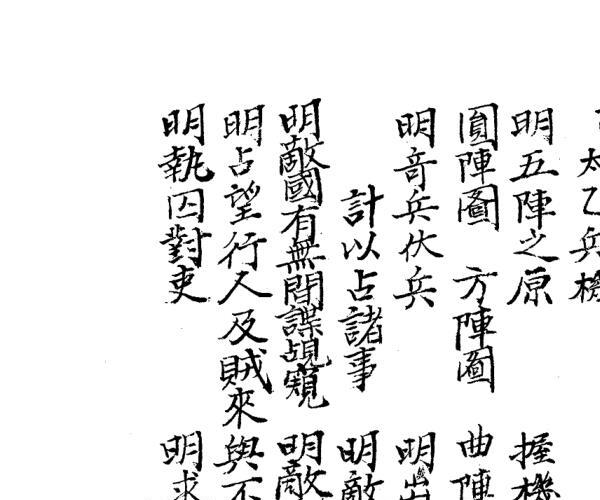 太乙兵機
明五陣之原 握機
圎陣圖 方陣圖 曲陣
明竒兵伏兵 明
計以占諸事 明敵
明敵國有無間諜覘窺 明敵
明占望行人及賊來與不
明執囚對吏 明求